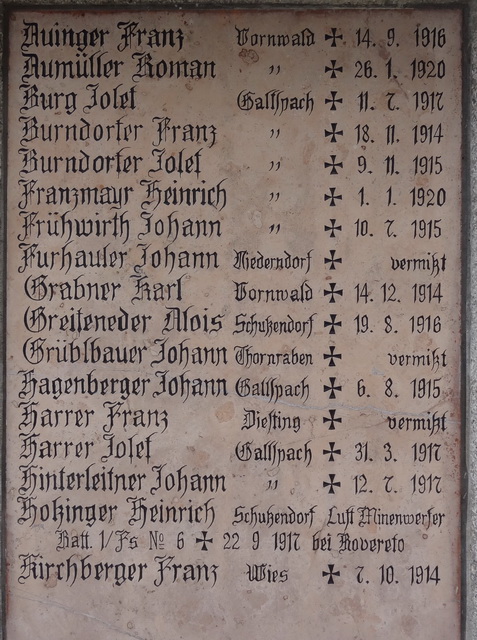 Auinger Franz Vornwald ✠ 14. 9. 1916
Aumüller Roman " ✠ 26. 1. 1920
Burg Josef Gallspach ✠ 11. 7. 1917
Burndorfer Franz " ✠ 18. 11. 1914
Burndorfer Josef " ✠ 9. 11. 1915
Franzmayr Heinrich " ✠ 1. 1. 1920
Frühwirth Johann " ✠ 10. 7. 1915
Furhauser Johann Niederndorf ✠ vermißt
Grabner Karl Vornwald ✠ 14. 12. 1914
Greifeneder Alois Schützendorf ✠ 19. 8. 1916
Grüblbauer Johann Thornraben ✠ vermißt
Hagenberger Johann Gallspach ✠ 6. 8. 1915
Harrer Franz Diesting ✠ vermißt
Harrer Josef Gallspach ✠ 31. 3. 1917
Hinterleitner Johann " ✠ 12. 7. 1917
Holzinger Heinrich Schützendorf Luft Minenwerfer
Batt. 1/Fs № 6 ✠ 22 9 1917 bei Rovereto
Kirchberger Franz Wies ✠ 7. 10. 1914